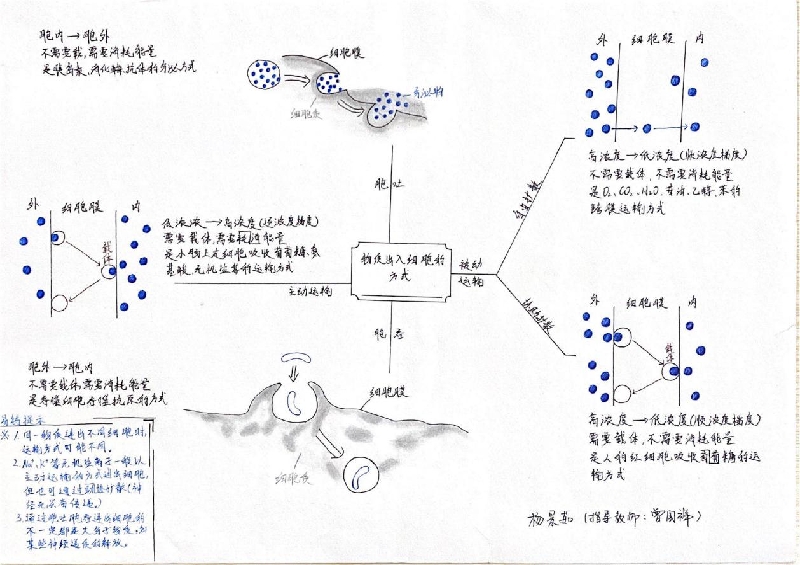 胞内→胞外
不需要载,需要消耗能量
是胰岛素、消化酶、抗体的分泌方式
细胞膜
分泌物
细胞质
胞吐
外 细胞膜 内
高浓度→低浓度(顺浓度梯度)
不需要载体,不需要消耗能量
是O₂、CO₂、H₂O、甘油、乙醇、苯的
跨膜运输方式
自由扩散
外 细胞膜 内
载体
低浓液→高浓度(逆浓度梯度)
需要载体,需要耗能量
是小肠上皮细胞吸收葡萄糖、氨
基酸、无机盐等的运输方式
主动运输
物质出入细胞的
方式
被动
运输
协助扩散
外 细胞膜 内
载体
高浓度→低浓度(顺浓度梯度)
需要载体,不需要消耗能量
是人的红细胞吸收葡萄糖的运
输方式
胞吞
细胞膜
细胞质
胞外→胞内
不需要载体,需要消耗能量
是吞噬细胞吞噬抗原的方式
提示
※ 1.同一物质进出不同细胞时,
运输方式可能不同。
2.Na⁺、K⁺等无机盐离子一般以
主动运输的方式进出细胞,
但也可通过协助扩散(神
经元兴奋传递。)
3.通过胞吐胞吞进出细胞的
不一定都是大分子物质,如
某些神经递质的释放。
杨景茹(指导教师:曾国祥。)